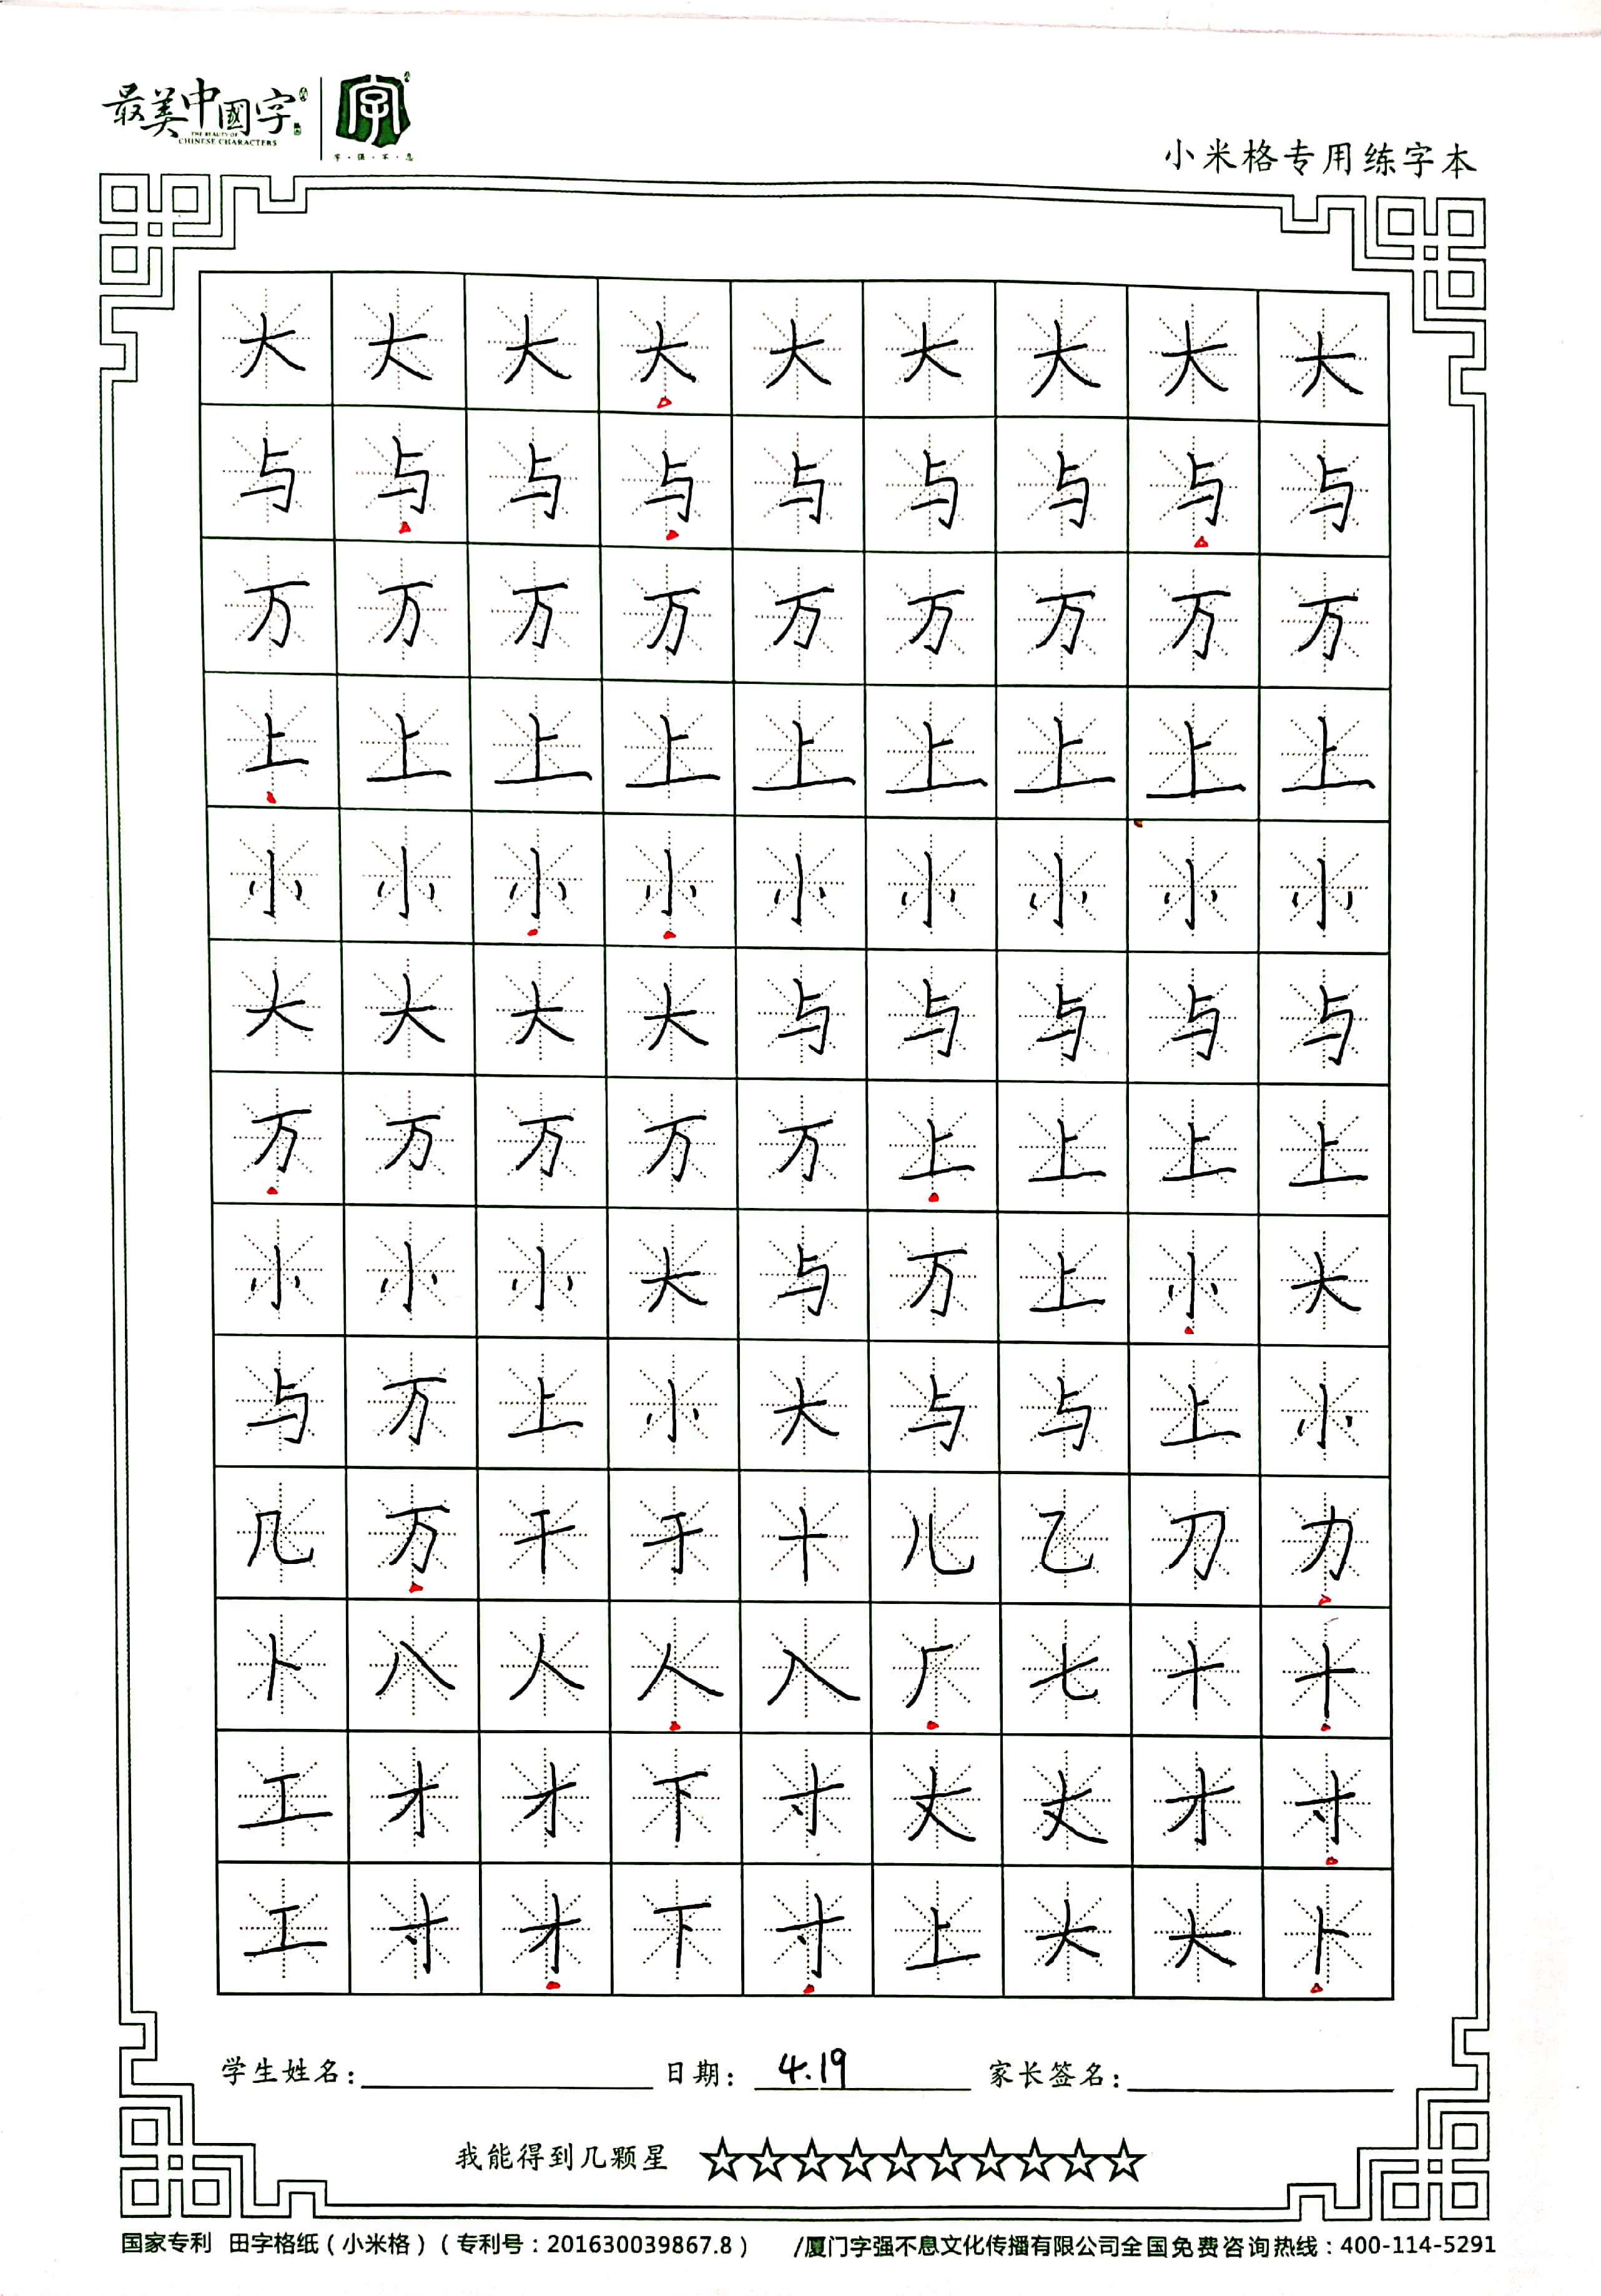 最美中國字
THE BEAUTY OF
CHINESE CHARACTERS
字
字·强·不·息
小米格专用练字本
大大大大大大大大大
与与与与与与与与与
万万万万万万万万万
上上上上上上上上上
小小小小小小小小小
大大大大与与与与与
万万万万万上上上上
小小小大与万上小大
与万上小大与与上小
几万干于十儿乙刀力
卜八人人入厂七十十
工才才下寸丈丈才寸
工寸才下寸上大大卜
学生姓名: 日期: 4.19 家长签名:
我能得到几颗星 ☆☆☆☆☆☆☆☆☆☆
国家专利 田字格纸(小米格)(专利号:201630039867.8) /厦门字强不息文化传播有限公司全国免费咨询热线:400-114-5291